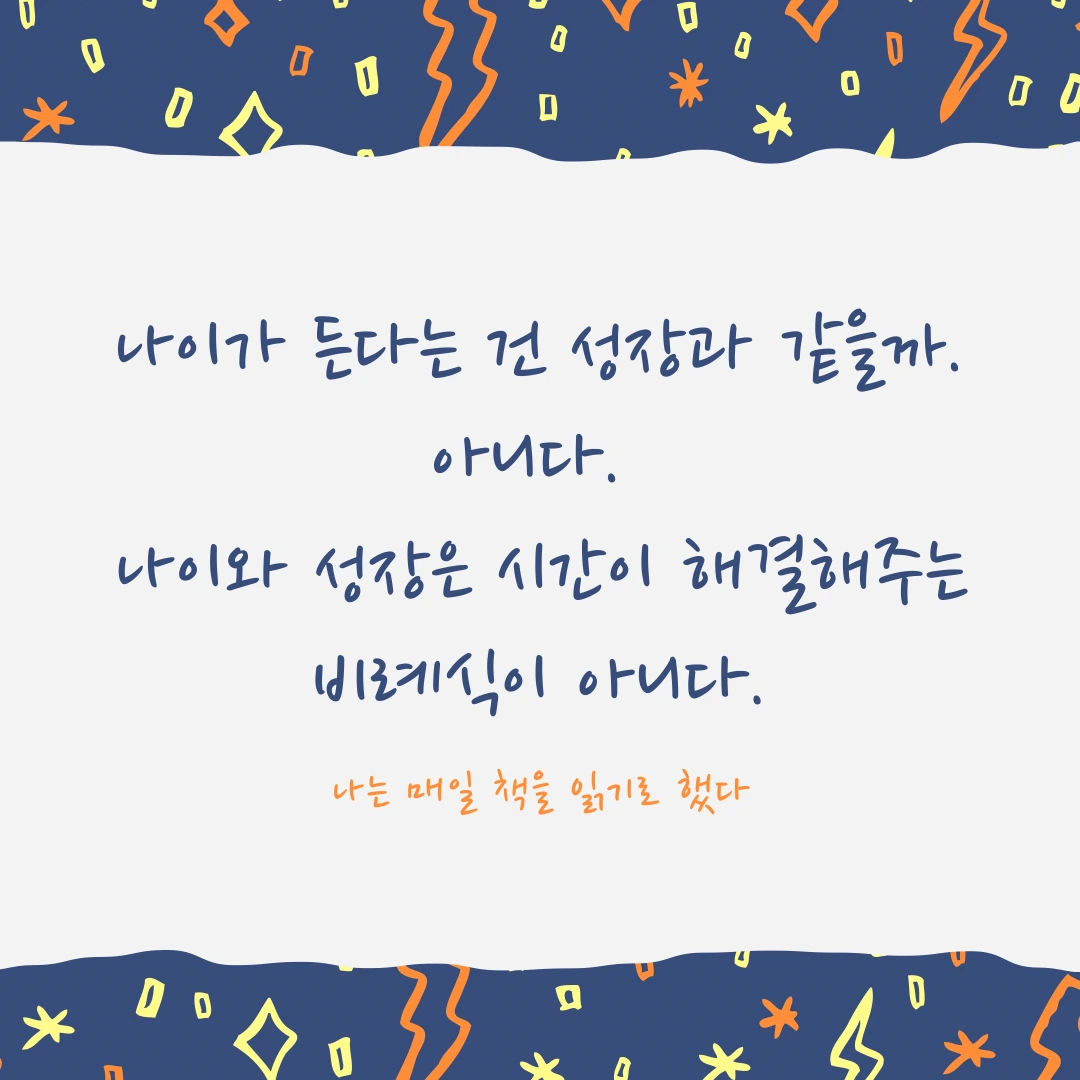 나이가 든다는 건 성장과 같을까.
아니다.
나이와 성장은 시간이 해결해주는
비례식이 아니다.
나는 매일 책을 읽기로 했다